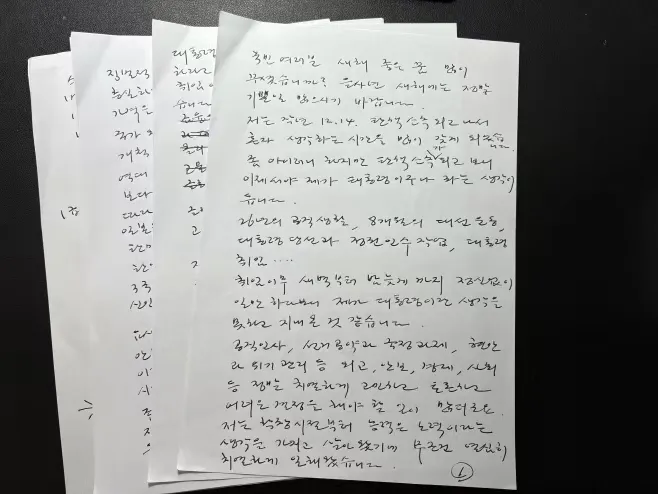 국민 여러분 새해 좋은 꿈 많이
꾸셨습니까? 을사년 새해에는 정말
기쁜 일 많으시기 바랍니다.
저는 작년 12.14. 탄핵소추 되고 나서
혼자 생각하는 시간을 많이 갖게 되었습니다.
좀 아이러니 하지만 탄핵소추가 되고 보니
이제서야 제가 대통령이구나 하는 생각이
듭니다.
26년의 공직생활, 8개월의 대선 운동,
대통령 당선과 정권 인수 작업, 대통령
취임....
취임 이후 새벽부터 밤늦게 까지 정신없이
일만 하다보니 제가 대통령이란 생각을
못하고 지내온 것 같습니다.
공직인사, 선거 공약과 국정과제, 현안
과 위기 관리 등 외교, 안보, 경제, 사회
등 정말 치열하게 고민하고 토론하고
어려운 결정을 해야 할 일이 많더군요.
저는 학창시절부터 능력은 노력이라는
생각을 가지고 살아왔기에 무조건 열심히
치열하게 일해왔습니다.
1
대통령
하라고
취임
습니다
고
징벌적
충실하
기억은
국가
개척
역대
보다